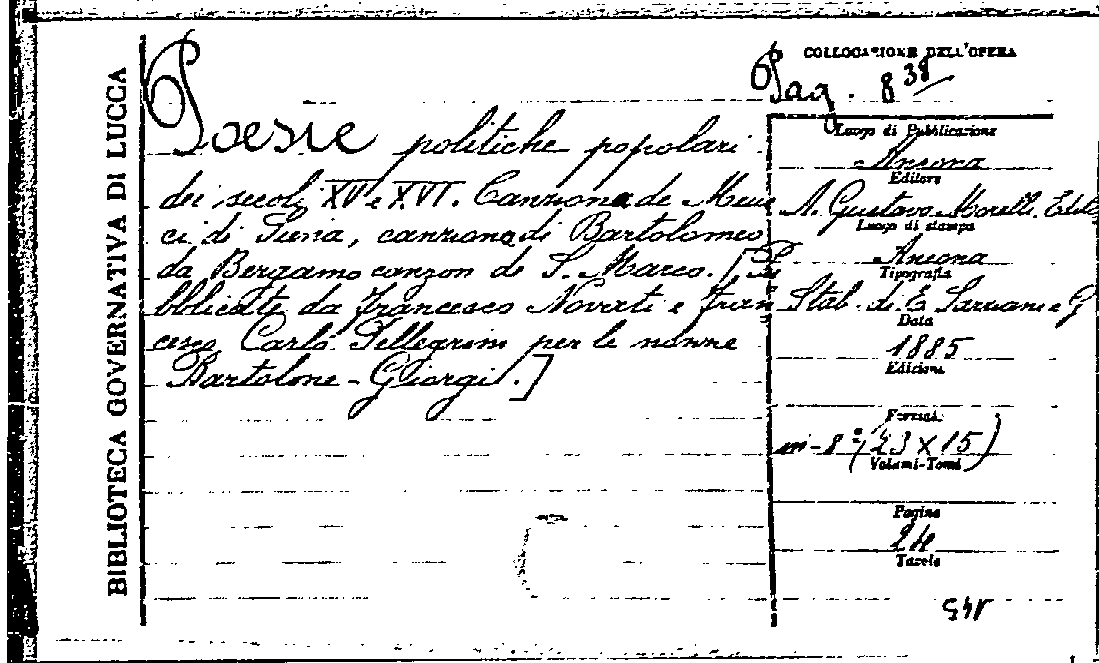 BIBLIOTECA GOVERNATIVA DI LUCCA
Poesie politiche popolari
dei secoli XV e XVI. Canzona de Meuc
ci di Siena, canzona di Bartolomeo
da Bergamo canzon de S. Marco. [Pu
bblicate da Francesco Novati e Fran
cesco Carlo Pellegrini per le nozze
Bartolone - Giorgi.]
COLLOCAZIONE DELL'OPERA
Pag. 838
Luogo di Pubblicazione
Ancona
Editore
A. Gustavo Morelli, Edit.
Luogo di stampa
Ancona
Tipografia
Stab. di E. Sarzani e
Data
1885
Edizione
Formato
in-8° (23 X 15)
Volumi-Tomi
Pagine
24
Tavole